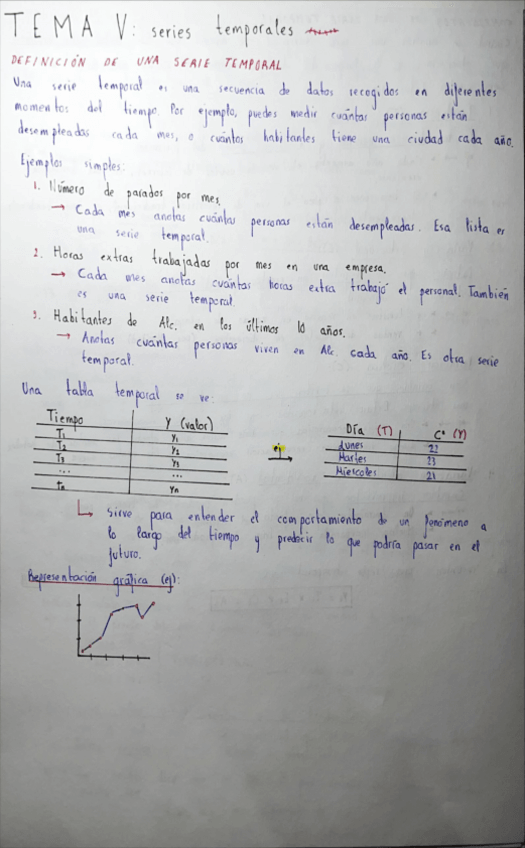 TEMA V: series temporales
DEFINICIÓN DE UNA SERIE TEMPORAL
Una serie temporal es una secuencia de datos recogidos en diferentes
momentos del tiempo. Por ejemplo, puedes medir cuántas personas están
desempleadas cada mes, o cuántos habitantes tiene una ciudad cada año.
Ejemplos simples:
1. Número de parados por mes.
→ Cada mes anotas cuántas personas están desempleadas. Esa lista es
una serie temporal.
2. Horas extras trabajadas por mes en una empresa.
→ Cada mes anotas cuántas horas extra trabajó el personal. También
es una serie temporal.
3. Habitantes de Alc. en los últimos 10 años.
→ Anotas cuántas personas viven en Alc. cada año. Es otra serie
temporal.
Una tabla temporal se ve:
Tiempo Y (valor)
T1 Y1
T2 Y2
T3 Y3
... ...
tn Yn
ej
→
Día (T) Cº (Y)
Lunes 22
Martes 23
Miércoles 21
↳ sirve para entender el comportamiento de un fenómeno a
lo largo del tiempo y predecir lo que podría pasar en el
futuro.
Representación gráfica (ej):